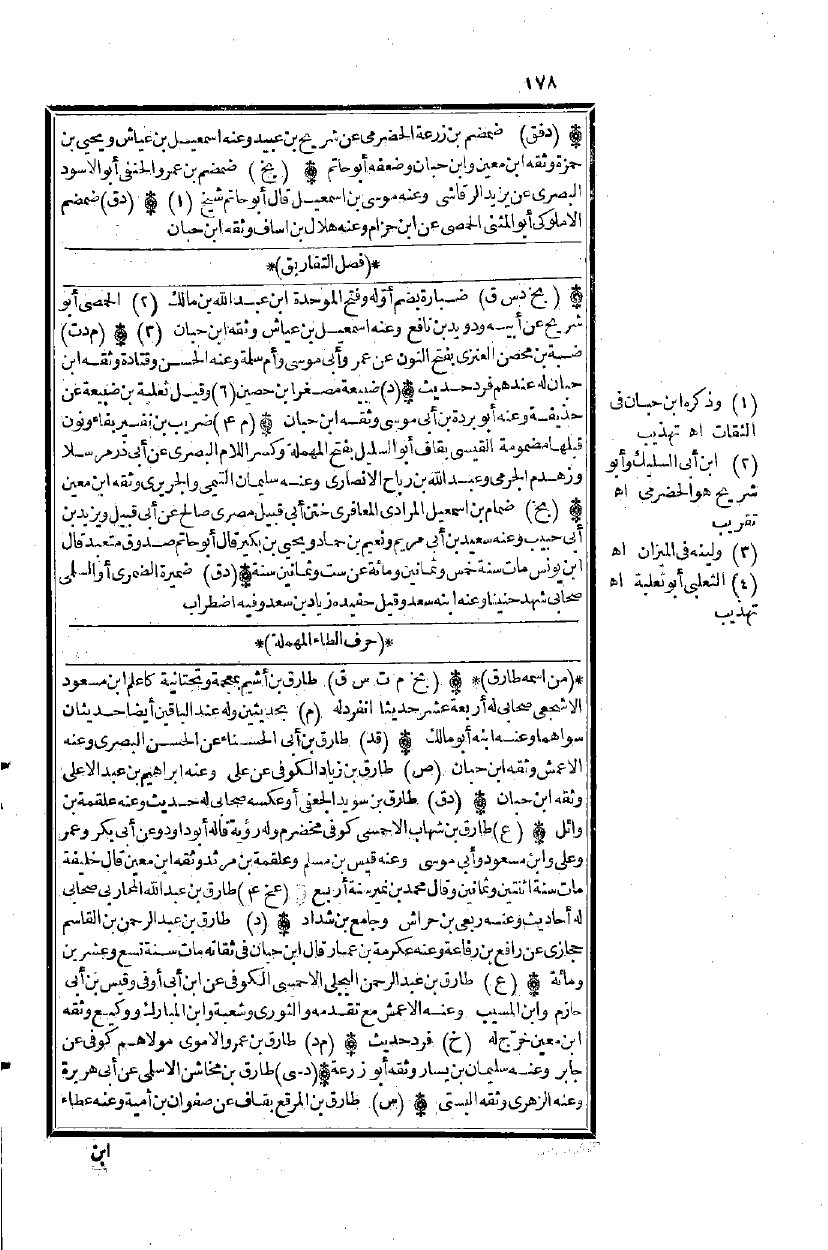 ١٧٨
(دفق) ضمضم بن زرعة الحضرمى عن شريح بن عبيد وعنه اسمعيل بن عياش ويحيى بن
حمزة وثقه ابن معين وابن حبان وضعفه أبو حاتم (بخ) ضمضم بن عمرو الحنفى أبو الاسود
البصرى عن يزيد الرقاشى وعنه موسى بن اسمعيل قال أبو حاتم شيخ (١) (دق) ضمضم
الاملوكى أبو المثنى الحمصى عن ابن حزام وعنه هلال بن اساف وثقه ابن حبان
*(فصل التفاريق)*
(بخ دس ق) ضبارة بضم أوله وفتح الموحدة ابن عبد الله بن مالك (٢) الحمصى أبو
شريح عن أبيه ودويد بن نافع وعنه اسمعيل بن عياش وثقه ابن حبان (٣) (م دت)
ضبة بن محصن العنزى بفتح النون عن عمر وأبى موسى وأم سلمة وعنه الحسن وقتادة وثقه ابن
حبان له عندهم فرد حديث (د) ضبيعة مصغرا بن حصين (٦) وقيل ثعلبة بن ضبيعة عن
حذيفة وعنه أبو بردة بن أبى موسى وثقه ابن حبان (م ٤) ضريب بن نفير بفاء ونون
قبلها مضمومة القيسى بقاف أبو السليل بفتح المهملة وكسر اللام البصرى عن أبى ذر مرسلا
وزهدم الجرمى وعبد الله بن رباح الانصارى وعنه سليمان التيمى والجريرى وثقه ابن معين
(بخ) ضمام بن اسمعيل المرادى المعافرى ختن أبى قبيل مصرى صالح عن أبى قبيل ويزيد بن
أبى حبيب وعنه سعيد بن أبى مريم ونعيم بن حماد ويحيى بن بكير قال أبو حاتم صدوق متعبد قال
ابن يونس مات سنة خمس وثمانين ومائة عن ست وثمانين سنة (دق) ضميرة الضمرى أو السلمى
صحابى شهد حنينا وعنه ابنه سعد وقيل حفيده زياد بن سعد وفيه اضطراب
*(حرف الطاء المهملة)*
*(من اسمه طارق)* (بخ م ت س ق) طارق بن أشيم بمعجمة وتحتانية كاعلم ابن مسعود
الاشجعى صحابى له أربعة عشر حديثا انفرد له (م) بحديثين وله عند الباقين أيضا حديثان
سواهما وعنه ابنه أبو مالك (قد) طارق بن أبى الحسناء عن الحسن البصرى وعنه
الاعمش وثقه ابن حبان (ص) طارق بن زياد الكوفى عن على وعنه ابراهيم بن عبد الاعلى
وثقه ابن حبان (دق) طارق بن سويد الجعفى أو عكسه صحابى له حديث وعنه علقمة بن
وائل (ع) طارق بن شهاب الاحمسى كوفى مخضرم وله رؤية قاله أبو داود وعن أبى بكر وعمر
وعلى وابن مسعود وأبى موسى وعنه قيس بن مسلم وعلقمة بن مرثد وثقه ابن معين قال خليفة
مات سنة اثنتين وثمانين وقال محمد بن نمير سنة أربع (عخ ٤) طارق بن عبد الله المحاربى صحابى
له أحاديث وعنه ربعى بن حراش وجامع بن شداد (د) طارق بن عبد الرحمن بن القاسم
حجازى عن رافع بن رفاعة وعنه عكرمة بن عمار قال ابن حبان فى ثقاته مات سنة تسع وعشرين
ومائة (ع) طارق بن عبد الرحمن البجلى الاحمسى الكوفى عن ابن أبى أوفى وقيس بن أبى
حازم وابن المسيب وعنه الاعمش مع تقدمه والثورى وشعبة وابن المبارك ووكيع وثقه
ابن معين خرج له (خ) فرد حديث (م د) طارق بن عمرو الاموى مولاهم كوفى عن
جابر وعنه سليمان بن يسار وثقه أبو زرعة (د - ى) طارق بن مخاشن الاسلمى عن أبى هريرة
وعنه الزهرى وثقه البستى (س) طارق بن المرقع بقاف عن صفوان بن أمية وعنه عطاء
ابن
(١) وذكره ابن حبان فى
الثقات اه تهذيب
(٢) ابن أبى السليك وأبو
شريح هو الحضرمى اه
تقريب
(٣) ولينه فى الميزان اه
(٤) الثعلبى أبو ثعلبة اه
تهذيب